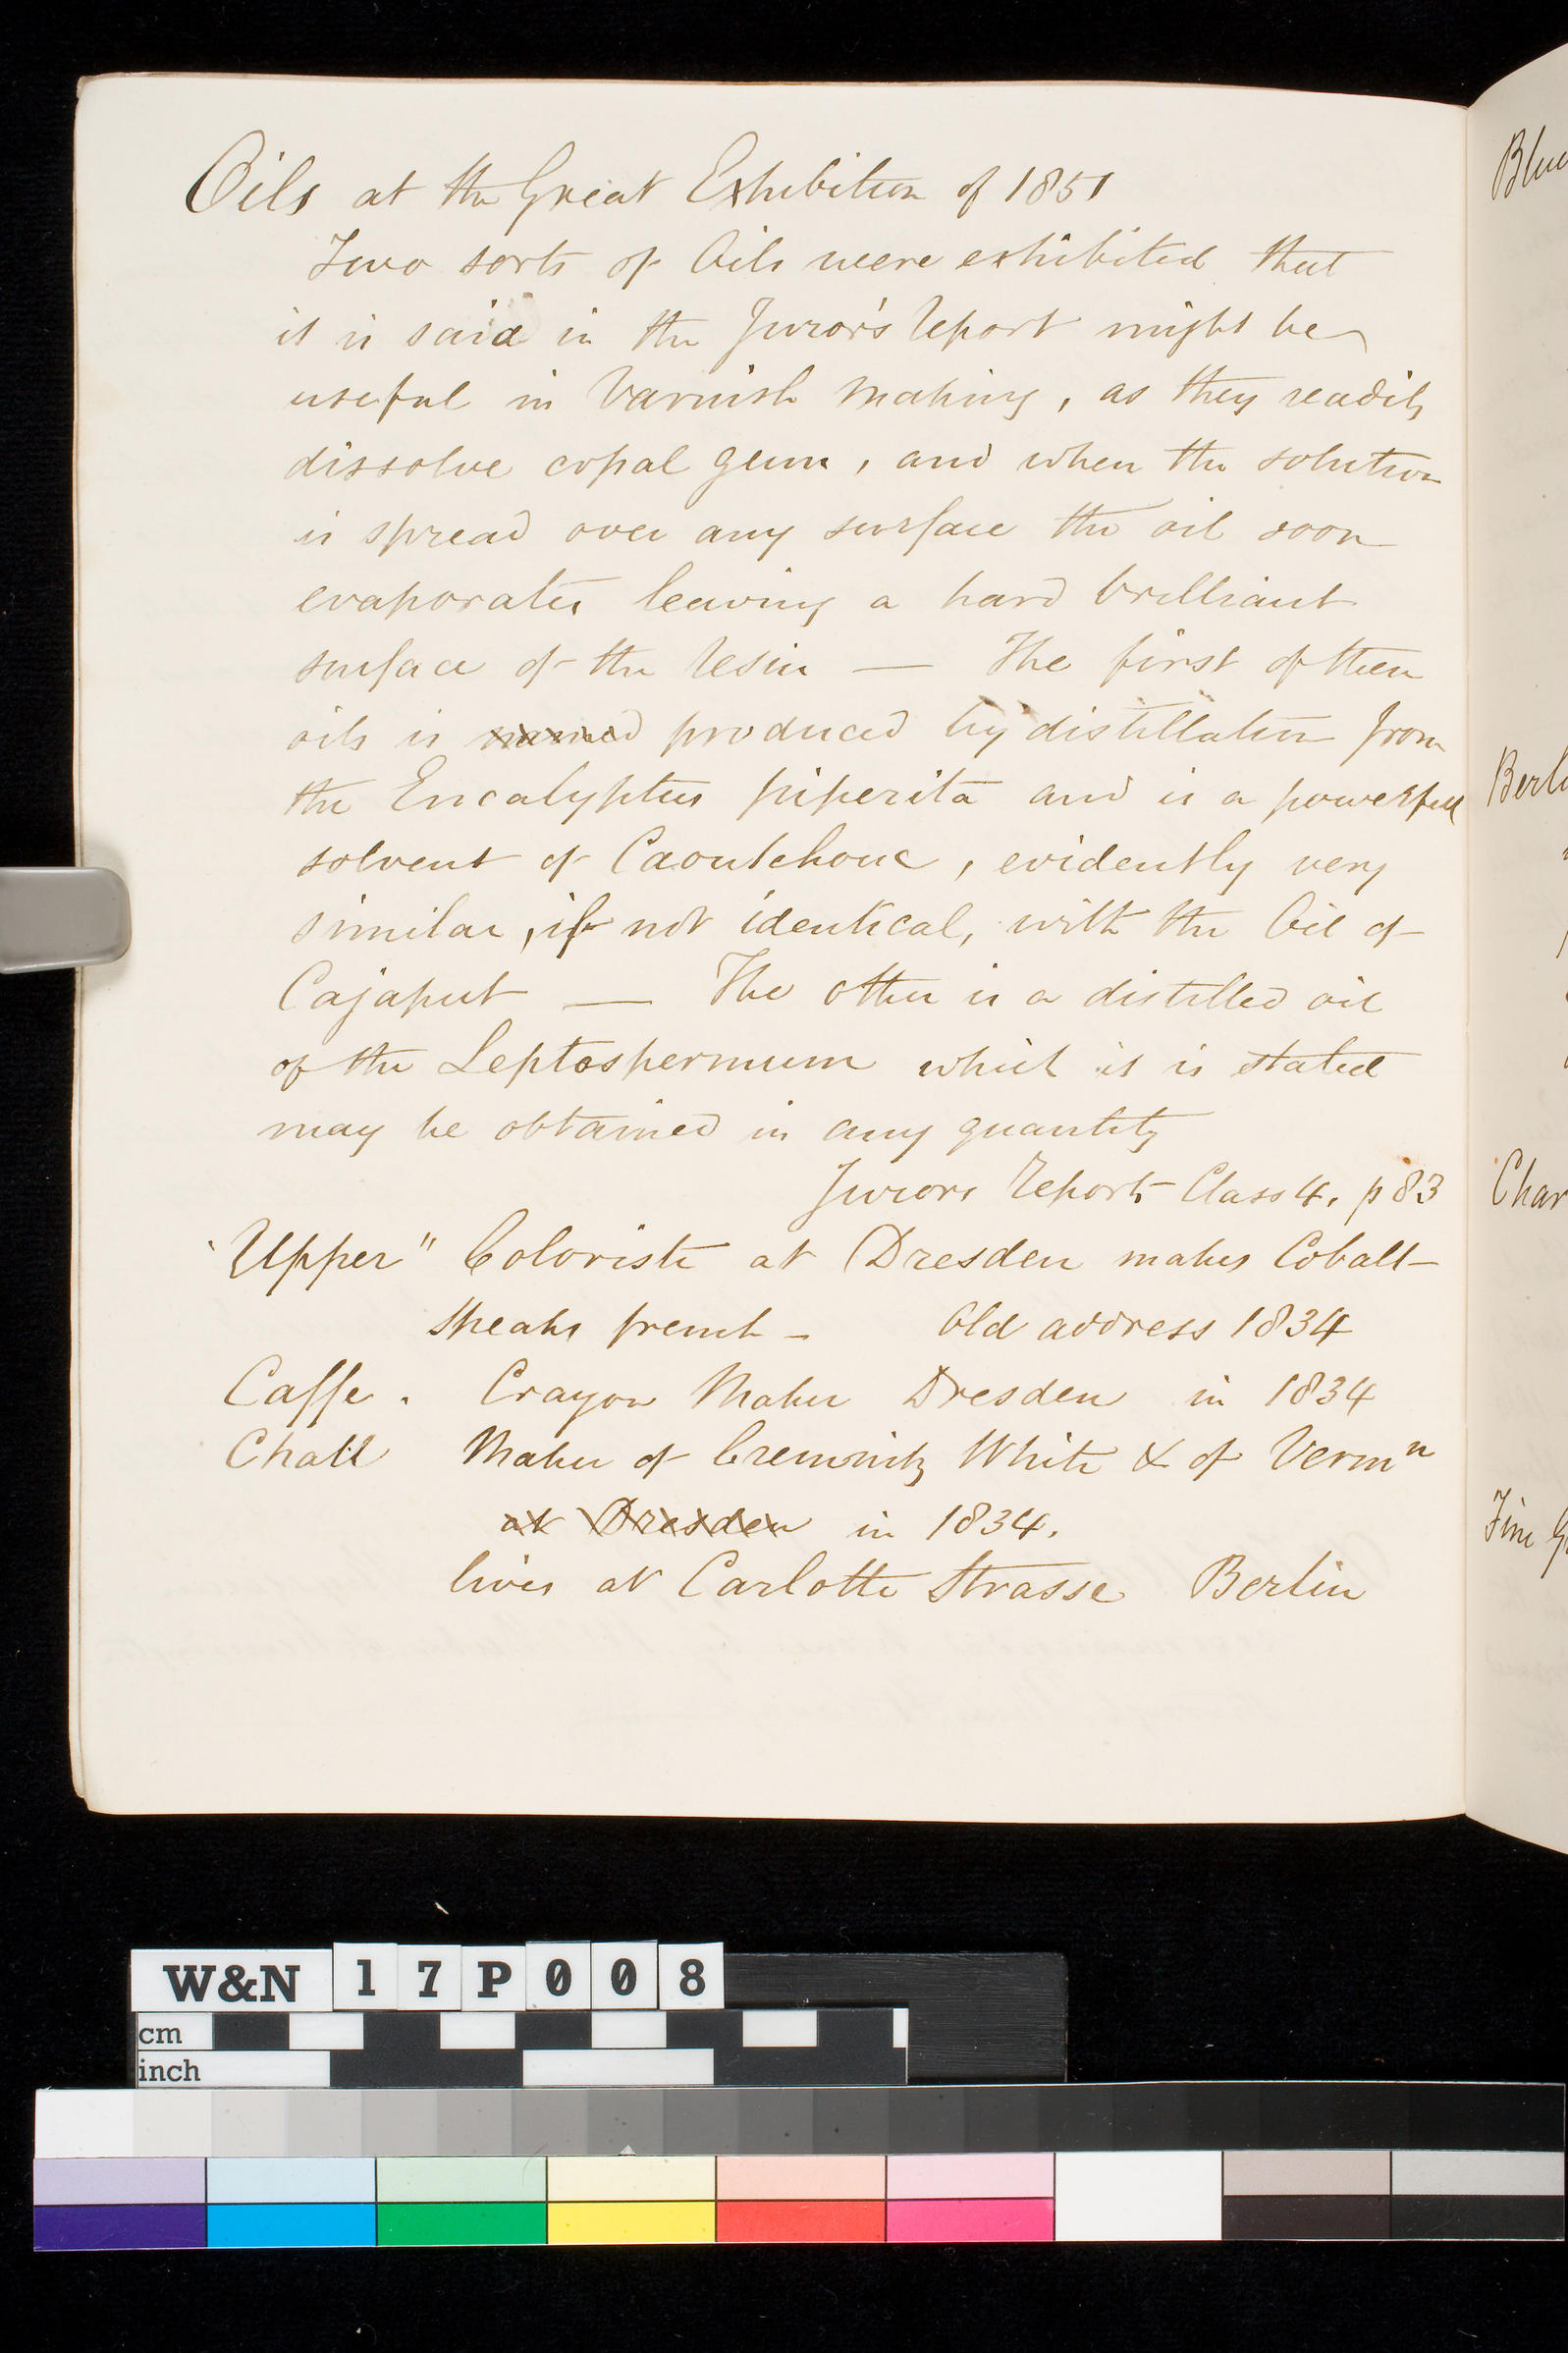 Oils at the Great Exhibition of 1851
Two sorts of Oils were exhibited that
it is said in the Juror's report might be
useful in Varnish Making, as they readily
dissolve copal gum, and when the solution
is spread over any surface the oil soon
evaporates leaving a hard brilliant
surface of the resin — The first of these
oils is named produced by distillation from
the Eucalyptus piperita and is a powerfull
solvent of Caoutchouc, evidently very
similar, if not identical, with the Oil of
Cajaput — The other is a distilled oil
of the Leptospermum which it is stated
may be obtained in any quantity
Jurors Reports Class 4. p 83
"Upper" Coloriste at Dresden makes Cobalt –
speaks french – Old address 1834
Caffe. Crayon Maker Dresden in 1834
Chall Maker of Cremnitz White & of Vermn
at Dresden in 1834.
lives at Carlotte Strasse Berlin
Blue
Berli
Char
Fine
W&N 17P008
cm
inch